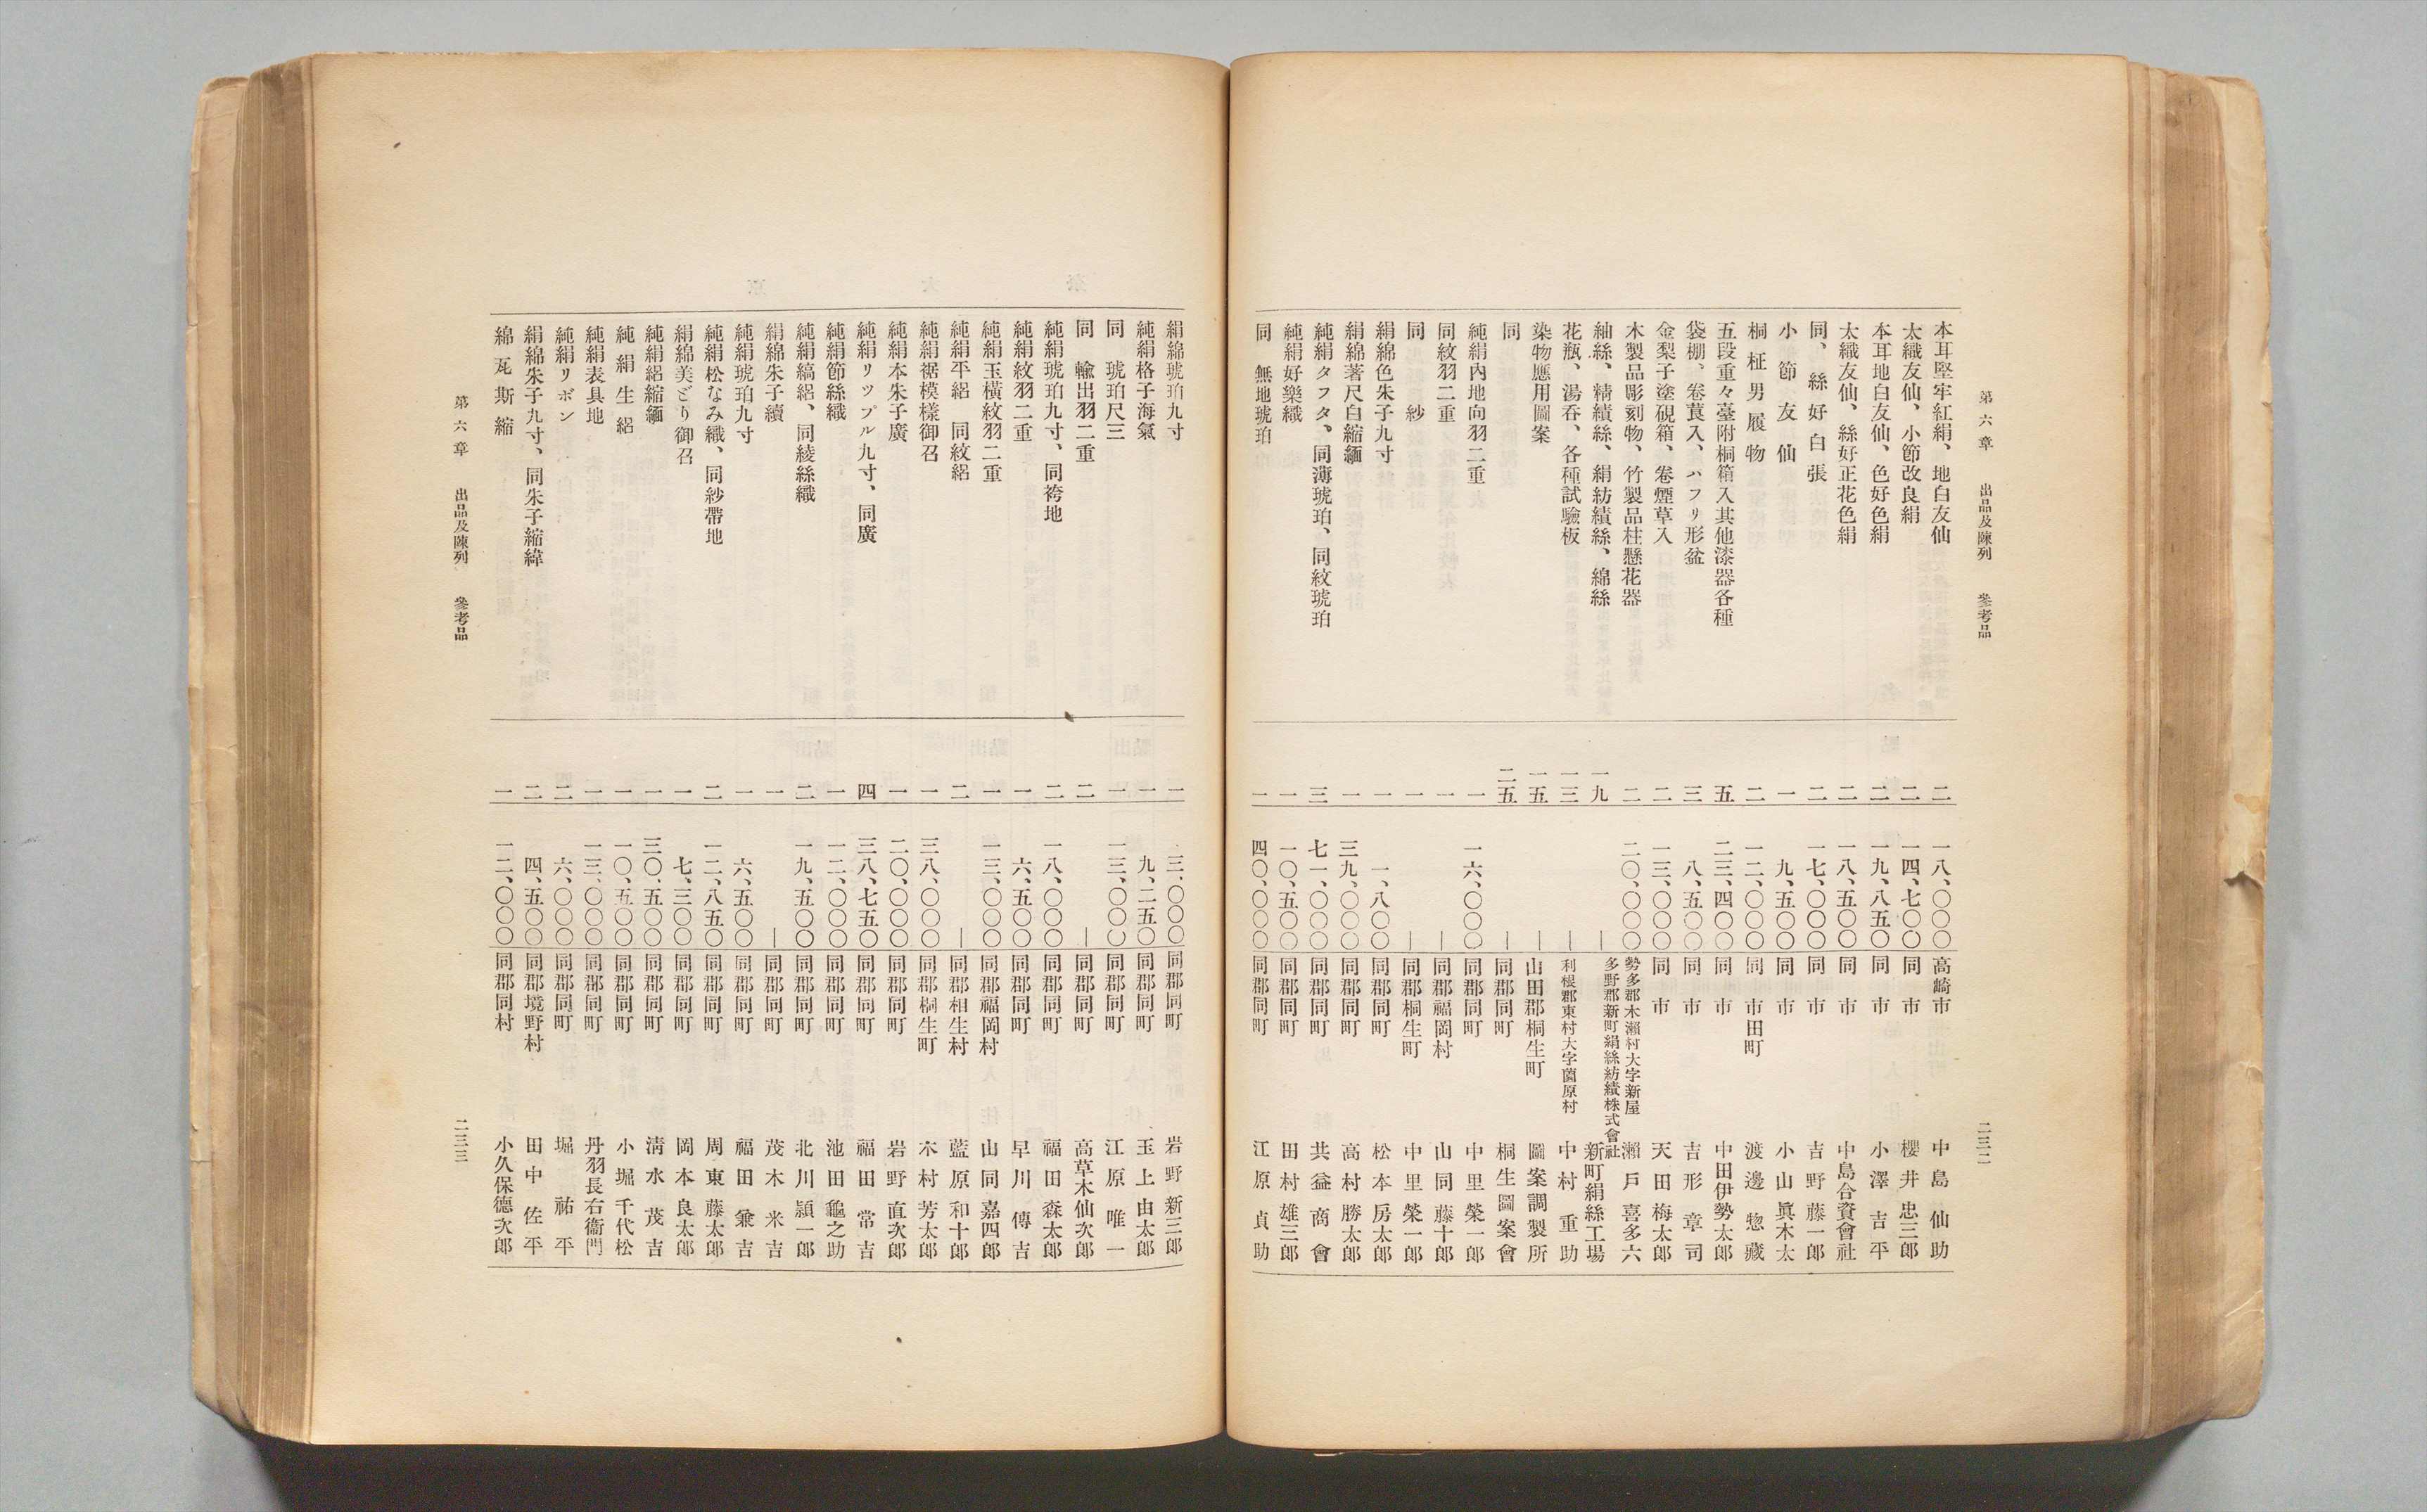 第六章　出品及陳列　參考品　二三二
本耳堅牢紅絹、地白友仙　二　一八、〇〇〇　高崎市　中島仙助
太織友仙、小節改良絹　二　一四、七〇〇　同市　櫻井忠三郎
本耳地白友仙、色好色絹　二　一九、八五〇　同市　小澤吉平
太織友仙、絲好正花色絹　二　一八、五〇〇　同市　中島合資會社
同、絲好白張　二　一七、〇〇〇　同市　吉野藤一郎
小節友仙　一　九、五〇〇　同市　小山眞木太
桐柾男履物　二　一二、〇〇〇　同市田町　渡邊惣藏
五段重々臺附桐箱入其他漆器各種　五　二三、四〇〇　同市　中田伊勢太郎
袋棚、卷莨入、ハフリ形盆　三　八、五〇〇　同市　吉形章司
金梨子塗硯箱、卷煙草入　二　一三、〇〇〇　同市　天田梅太郎
木製品彫刻物、竹製品柱懸花器　二　二〇、〇〇〇　勢多郡木瀬村大字新屋　瀨戶喜多六
紬絲、精績絲、絹紡績絲、綿絲　一九　—　多野郡新町絹絲紡績株式會社　新町絹絲工場
花瓶、湯呑、各種試驗板　一三　—　利根郡東村大字薗原村　中村重助
染物應用圖案　一五　—　山田郡桐生町　圖案調製所
同　二五　—　同郡同町　桐生圖案會
純絹內地向羽二重　一　一六、〇〇〇　同郡同町　中里榮一郎
同紋羽二重　一　—　同郡福岡村　山同藤十郎
同　紗　一　—　同郡桐生町　中里榮一郎
絹綿色朱子九寸　一　一、八〇〇　同郡同町　松本房太郎
絹綿著尺白縮緬　一　三九、〇〇〇　同郡同町　高村勝太郎
純絹タフタ、同薄琥珀、同紋琥珀　三　七一、〇〇〇　同郡同町　共益商會
純絹好樂織　一　一〇、五〇〇　同郡同町　田村雄三郎
同　無地琥珀　一　四〇、〇〇〇　同郡同町　江原貞助
絹綿琥珀九寸　一　三、〇〇〇　同郡同町　岩野新三郎
純絹格子海氣　一　九、二五〇　同郡同町　玉上由太郎
同　琥珀尺三　一　一三、〇〇〇　同郡同町　江原唯一
同　輸出羽二重　二　—　同郡同町　高草木仙次郎
純絹琥珀九寸、同袴地　二　一八、〇〇〇　同郡同町　福田森太郎
純絹紋羽二重　一　六、五〇〇　同郡同町　早川傳吉
純絹玉橫紋羽二重　一　一三、〇〇〇　同郡福岡村　山同嘉四郎
純絹平絽　同紋絽　二　—　同郡相生村　藍原和十郎
純絹裾模樣御召　一　三八、〇〇〇　同郡桐生町　木村芳太郎
純絹本朱子廣　一　二〇、〇〇〇　同郡同町　岩野直次郎
純絹リツプル九寸、同廣　四　三八、七五〇　同郡同町　福田常吉
純絹節絲織　一　一二、〇〇〇　同郡同町　池田龜之助
純絹縞絽、同綾絲織　二　一九、五〇〇　同郡同町　北川頴一郎
絹綿朱子續　一　—　同郡同町　茂木米吉
純絹琥珀九寸　一　六、五〇〇　同郡同町　福田兼吉
純絹松なみ織、同紗帶地　二　一二、八五〇　同郡同町　周東藤太郎
絹綿美どり御召　一　七、三〇〇　同郡同町　岡本良太郎
純絹絽縮緬　一　三〇、五〇〇　同郡同町　淸水茂吉
純絹生絽　一　一〇、五〇〇　同郡同町　小堀千代松
純絹表具地　一　一三、〇〇〇　同郡同町　丹羽長右衞門
純絹リボン　二　六、〇〇〇　同郡同町　堀祐平
絹綿朱子九寸、同朱子縮緯　二　四、五〇〇　同郡境野村　田中佐平
綿瓦斯縮　一　一二、〇〇〇　同郡同村　小久保德次郎
第六章　出品及陳列　參考品　二三三